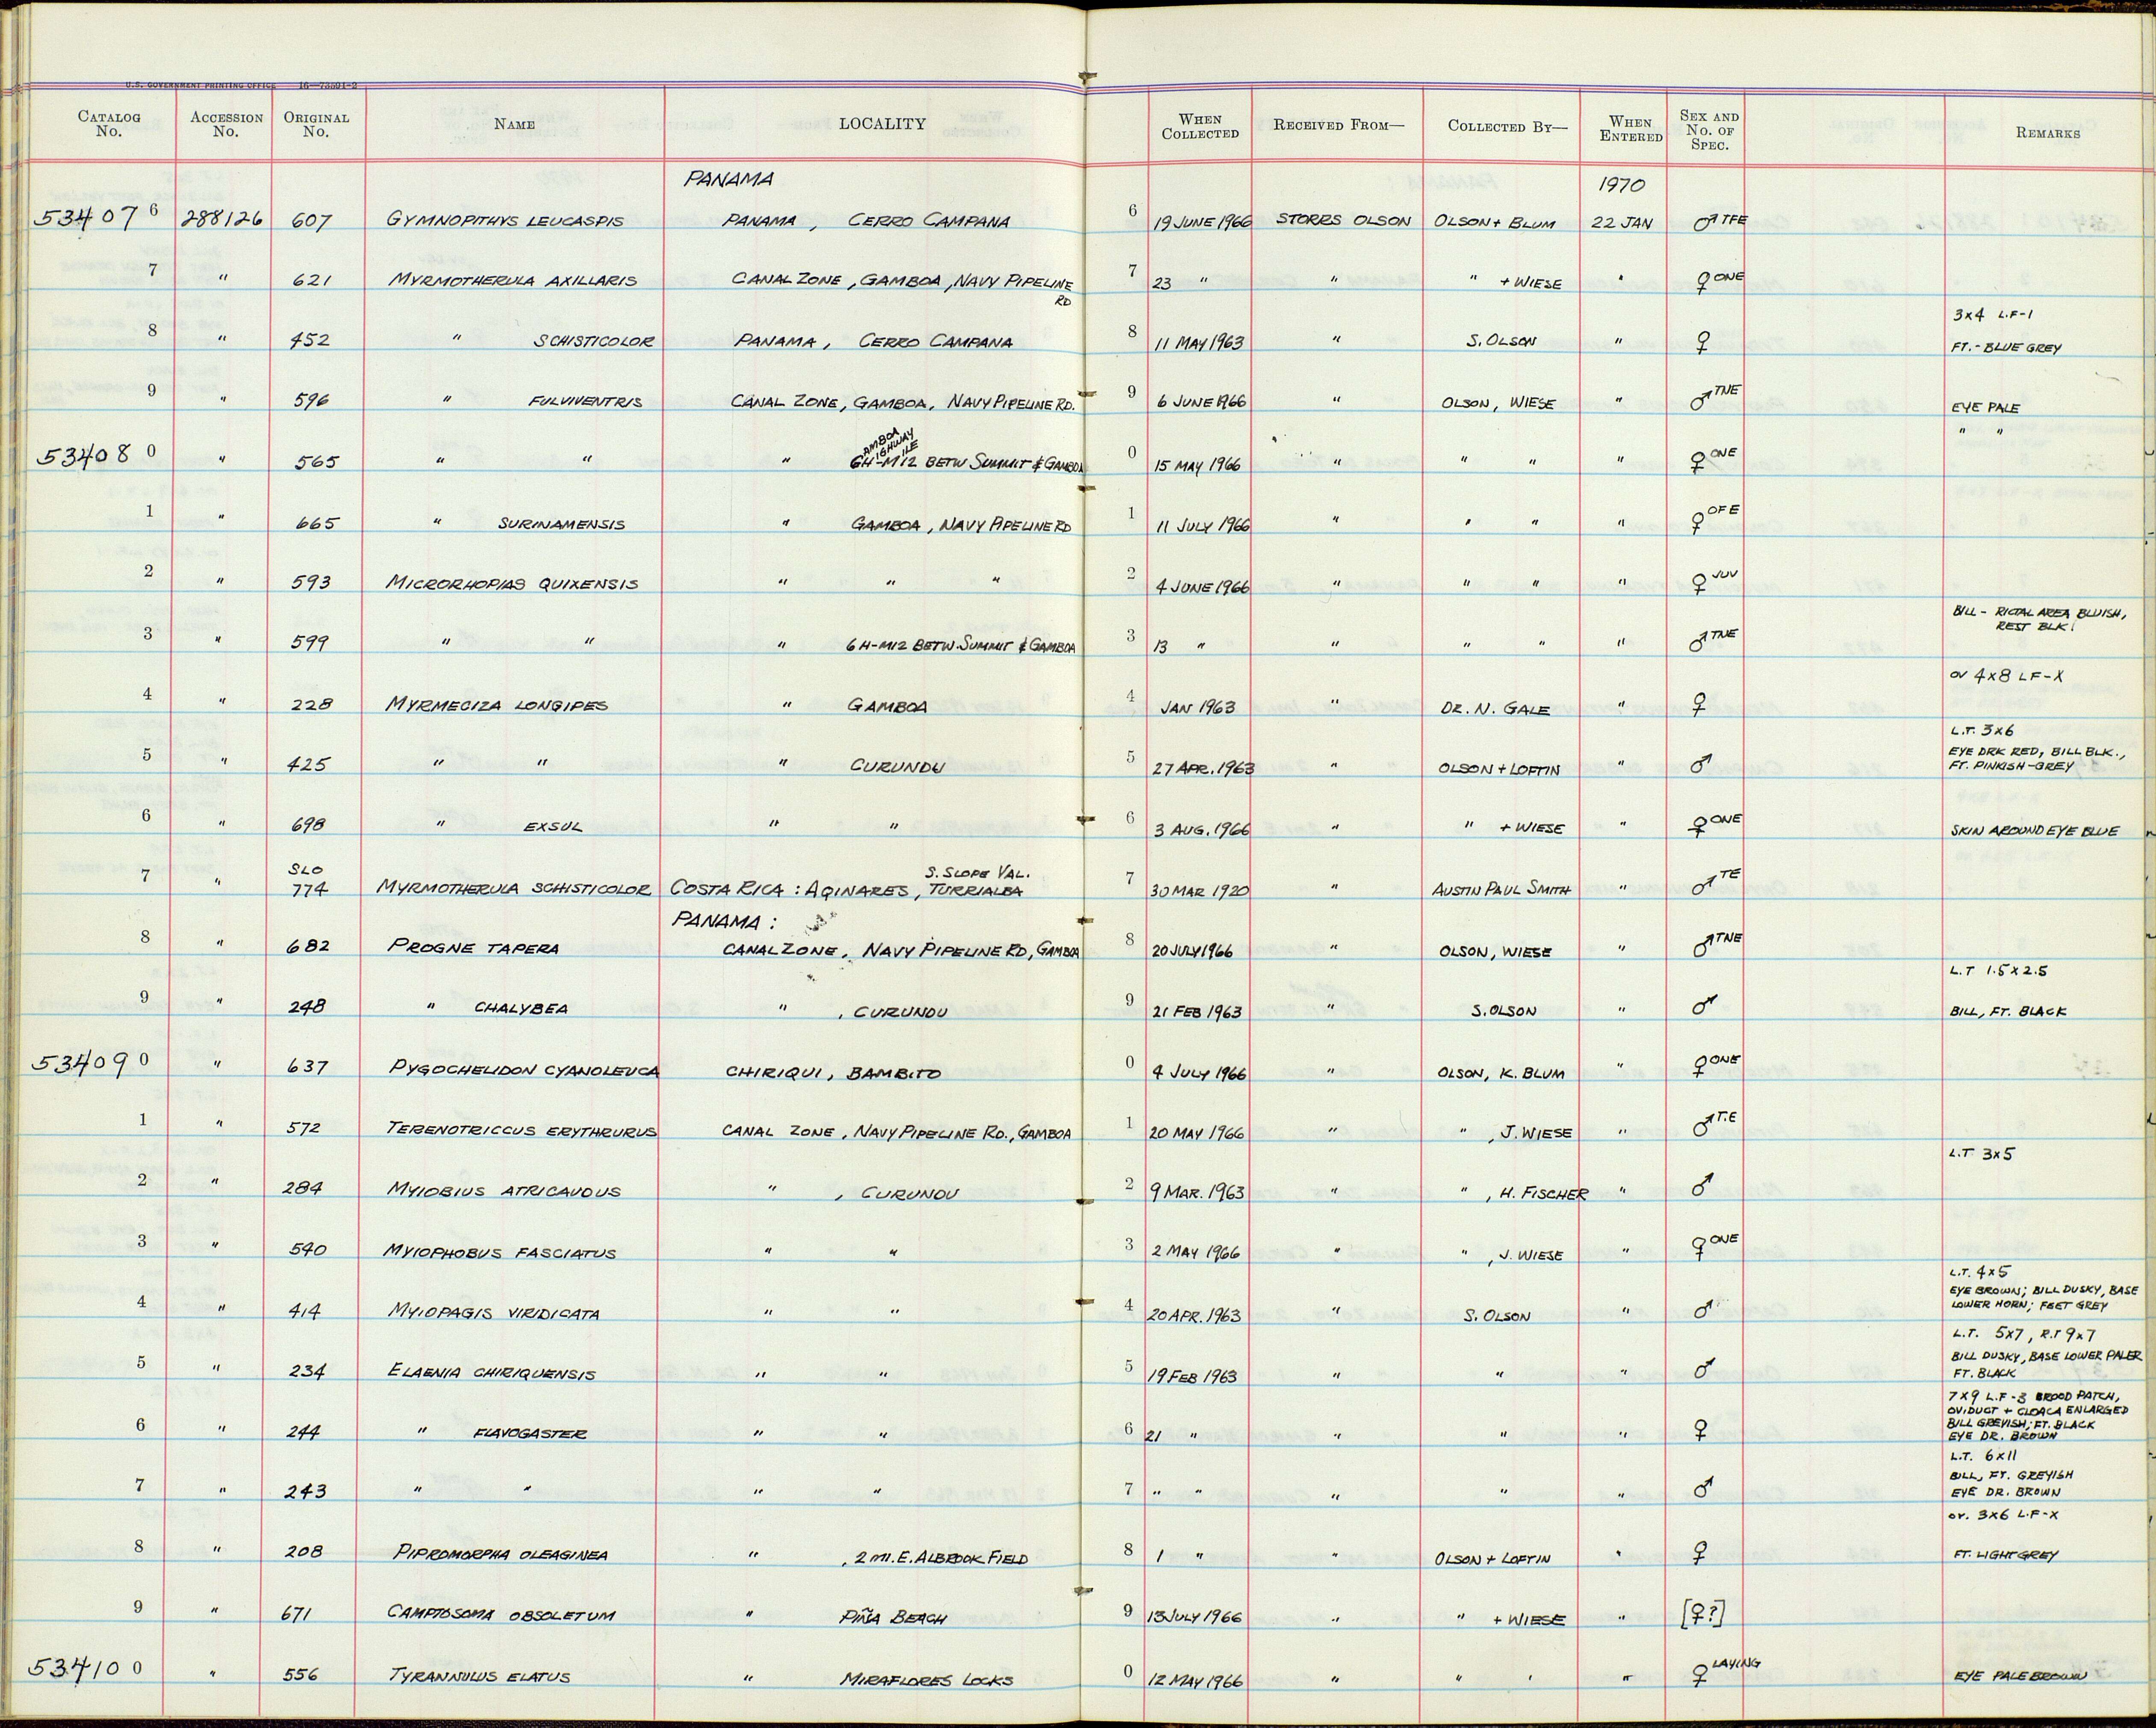 U.S. GOVERNMENT PRINTING OFFICE 16—73591-2
CATALOG No. ACCESSION No. ORIGINAL No. NAME LOCALITY WHEN COLLECTED RECEIVED FROM— COLLECTED BY— WHEN ENTERED SEX AND No. OF SPEC. REMARKS
PANAMA 1970
534076 288126 607 GYMNOPITHYS LEUCASPIS PANAMA, CERRO CAMPANA 6 19 JUNE 1966 STORRS OLSON OLSON + BLUM 22 JAN ♂ TFE
7 " 621 MYRMOTHERULA AXILLARIS CANAL ZONE, GAMBOA, NAVY PIPELINE RD 7 23 " " " + WIESE " ♀ ONE
8 " 452 " SCHISTICOLOR PANAMA, CERRO CAMPANA 8 11 MAY 1963 " S. OLSON " ♀ 3x4 L.F-1 FT.- BLUE GREY
9 " 596 " FULVIVENTRIS CANAL ZONE, GAMBOA, NAVY PIPELINE RD. 9 6 JUNE 1966 " OLSON, WIESE " ♂ TNE EYE PALE
534080 " 565 " " " GAMBOA HIGHWAY MILE GH-M12 BETW SUMMIT & GAMBOA 0 15 MAY 1966 " " " " ♀ ONE " "
1 " 665 " SURINAMENSIS " GAMBOA, NAVY PIPELINE RD 1 11 JULY 1966 " " " " ♀ OFE
2 " 593 MICRORHOPIAS QUIXENSIS " " " 2 4 JUNE 1966 " " " " ♀ JUV
3 " 599 " " " GH-M12 BETW. SUMMIT & GAMBOA 3 13 " " " " " ♂ TNE BILL - RICTAL AREA BLUISH, REST BLK.
4 " 228 MYRMECIZA LONGIPES " GAMBOA 4 JAN 1963 " DR. N. GALE " ♀ OV 4x8 LF-X
5 " 425 " " " CURUNDU 5 27 APR. 1963 " OLSON + LOFTIN " ♂ L.T. 3x6 EYE DRK RED, BILL BLK., FT. PINKISH-GREY
6 " 698 " EXSUL " " 6 3 AUG. 1966 " " + WIESE " ♀ ONE SKIN AROUND EYE BLUE
7 " SLO 774 MYRMOTHERULA SCHISTICOLOR COSTA RICA: AQINARES, S. SLOPE VAL. TURRIALBA 7 30 MAR 1920 " AUSTIN PAUL SMITH " ♂ TE
PANAMA:
8 " 682 PROGNE TAPERA CANAL ZONE, NAVY PIPELINE RD, GAMBOA 8 20 JULY 1966 " OLSON, WIESE " ♂ TNE
9 " 248 " CHALYBEA " , CURUNDU 9 21 FEB 1963 " S. OLSON " ♂ L.T 1.5x2.5 BILL, FT. BLACK
534090 " 637 PYGOCHELIDON CYANOLEUCA CHIRIQUI, BAMBITO 0 4 JULY 1966 " OLSON, K. BLUM " ♀ ONE
1 " 572 TERENOTRICCUS ERYTHRURUS CANAL ZONE, NAVY PIPELINE RD., GAMBOA 1 20 MAY 1966 " " , J. WIESE " ♂ T.E
2 " 284 MYIOBIUS ATRICAUDUS " , CURUNDU 2 9 MAR. 1963 " " , H. FISCHER " ♂ L.T 3x5
3 " 540 MYIOPHOBUS FASCIATUS " " 3 2 MAY 1966 " " , J. WIESE " ♀ ONE
4 " 414 MYIOPAGIS VIRIDICATA " " 4 20 APR. 1963 " S. OLSON " ♂ L.T. 4x5 EYE BROWN; BILL DUSKY, BASE LOWER HORN; FEET GREY
5 " 234 ELAENIA CHIRIQUENSIS " " 5 19 FEB 1963 " " " ♂ L.T. 5x7, R.T 9x7 BILL DUSKY, BASE LOWER PALER FT. BLACK
6 " 244 " FLAVOGASTER " " 6 21 " " " " ♀ 7x9 L.F-3 BROOD PATCH, OVIDUCT + CLOACA ENLARGED BILL GREYISH; FT. BLACK EYE DR. BROWN
7 " 243 " " " " 7 " " " " " ♂ L.T. 6x11 BILL, FT. GREYISH EYE DR. BROWN
8 " 208 PIPROMORPHA OLEAGINEA " , 2 MI. E. ALBROOK FIELD 8 1 " " OLSON + LOFTIN " ♀ OV. 3x6 L.F-X FT. LIGHT GREY
9 " 671 CAMPTOSOMA OBSOLETUM " PIÑA BEACH 9 13 JULY 1966 " " + WIESE " [♀?]
534100 " 556 TYRANNULUS ELATUS " MIRAFLORES LOCKS 0 12 MAY 1966 " " " " ♀ LAYING EYE PALE BROWN